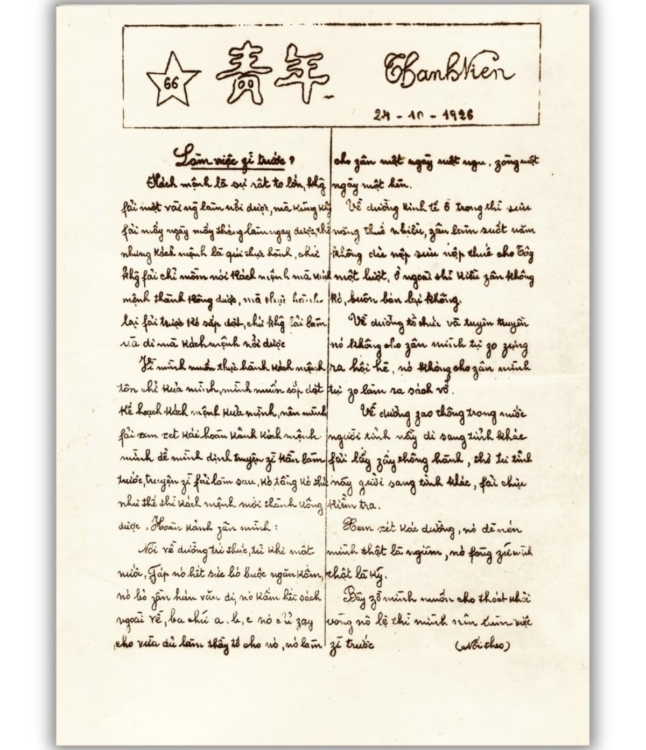 66
青年
Thanh Niên
24-10-1926
Làm việc zì trước?
Kách mệnh là sự rất to lớn, khg
fải một vài ng làm nổi được, mà kũng khg
fải mấy ngày mấy tháng làm ngay được, thế
nhưng kách mệnh là quí thực hành, chứ
khg fải chỉ mồm nói kách mệnh mà kách
mệnh thành kông được, mà thực hành
lại fải trước kó sắp đặt, chứ khg fải làm
và đi mà kách mệnh nổi được
mình muốn thực hành kách mệnh
tôn chỉ kủa mình, mình muốn sắp đặt
kế hoạch kách mệnh kủa mình, nên mình
fải xem xét kái hoàn kảnh kách mệnh
mình để mình định truyện zì kần làm
trước, truyện zì fải làm sau, kó tầng kó thứ
như thế thì kách mệnh mới thành kông
được. Hoàn kảnh zân mình:
Nói về đường trí thức, từ khi mất
nước, Fáp nó hết sức bó buộc ngăn kấm,
nó bỏ gần hán văn đi, nó kấm hết sách
ngoài về, ba chữ a, b, c nó cứ zạy
cho vừa đủ làm thầy tớ cho nó, nó làm
cho zân một ngày một ngu, zống một
ngày một hèn.
Về đường kinh tế ở trong thì sưu
nặng thuế nhiều, zân làm suốt năm
không đủ nộp sưu nộp thuế cho Tây
một lượt, ở ngoài thì kiều zân không
kó, buôn bán lại không.
Về đường tổ chức và tuyên truyền
nó không cho zân mình tự zo zựng
ra hội hè, nó không cho zân mình
tự zo làm ra sách vở.
Về đường zao thông trong nước
người tỉnh nầy đi sang tỉnh khác
fải lấy zấy thông hành, thơ từ tỉnh
nầy gưởi sang tỉnh khác, fải chịu
kiểm tra.
Xem xét kác đường, nó đè nén
mình thật là ngiệm, nó fòng zữ mình
thật là kỹ.
Bây zờ mình muốn cho thoát khỏi
vòng nô lệ thì mình nên làm việc
zì trước (Nối theo)